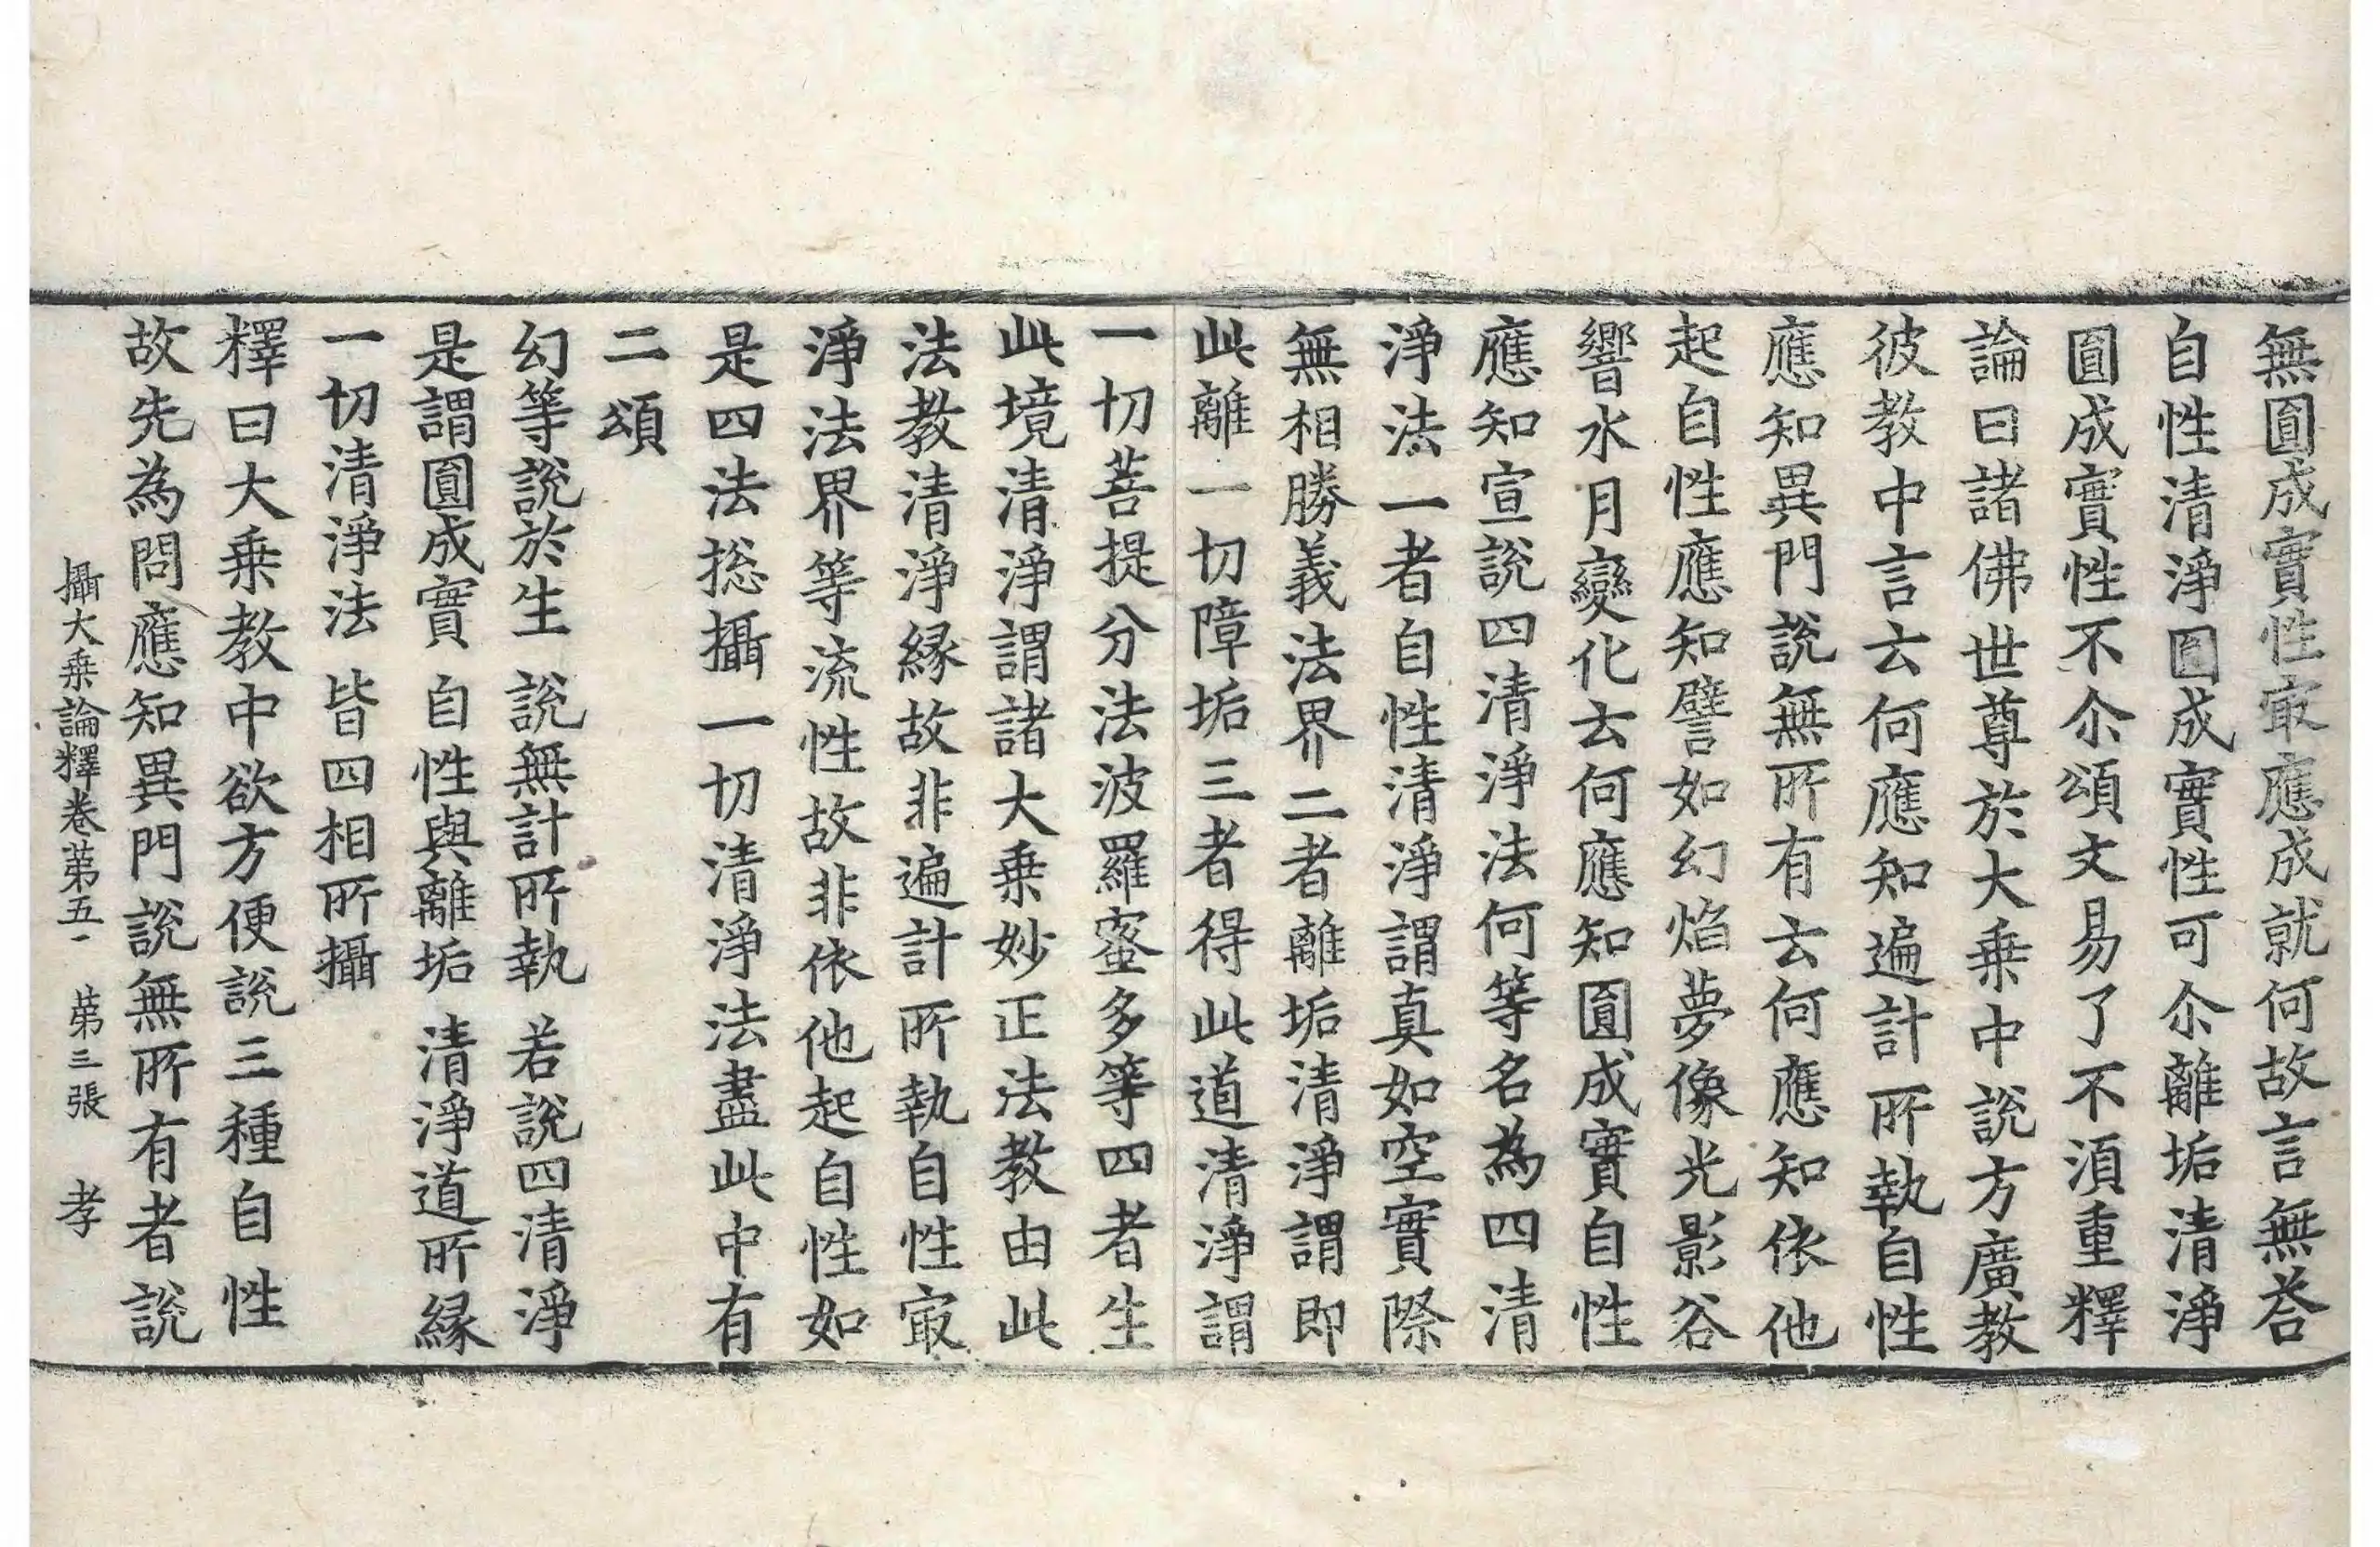 無圓成實性㝡應成就何故言無荅
自性清淨圓成實性可尒離垢清淨
圓成實性不尒頌文易了不湏重釋
論曰諸佛世尊於大乗中說方廣教
彼教中言云何應知遍計所執自性
應知異門說無所有云何應知依他
起自性應知譬如幻焰夢像光影谷
響水月變化云何應知圓成實自性
應知宣說四清淨法何等名為四清
淨法一者自性清淨謂真如空實際
無相勝義法界二者離垢清淨謂即
此離一切障垢三者得此道清淨謂
一切菩提分法波羅蜜多等四者生
此境清淨謂諸大乗妙正法教由此
法教清淨緣故非遍計所執自性㝡
淨法界等流性故非依他起自性如
是四法揔攝一切清淨法盡此中有
二頌
幻等說於生 說無計所執 若說四清淨
是謂圓成實 自性與離垢 清淨道所緣
一切清淨法 皆四相所攝
釋曰大乗教中欲方便說三種自性
故先為問應知異門說無所有者說
攝大乗論釋卷苐五 苐三張 孝